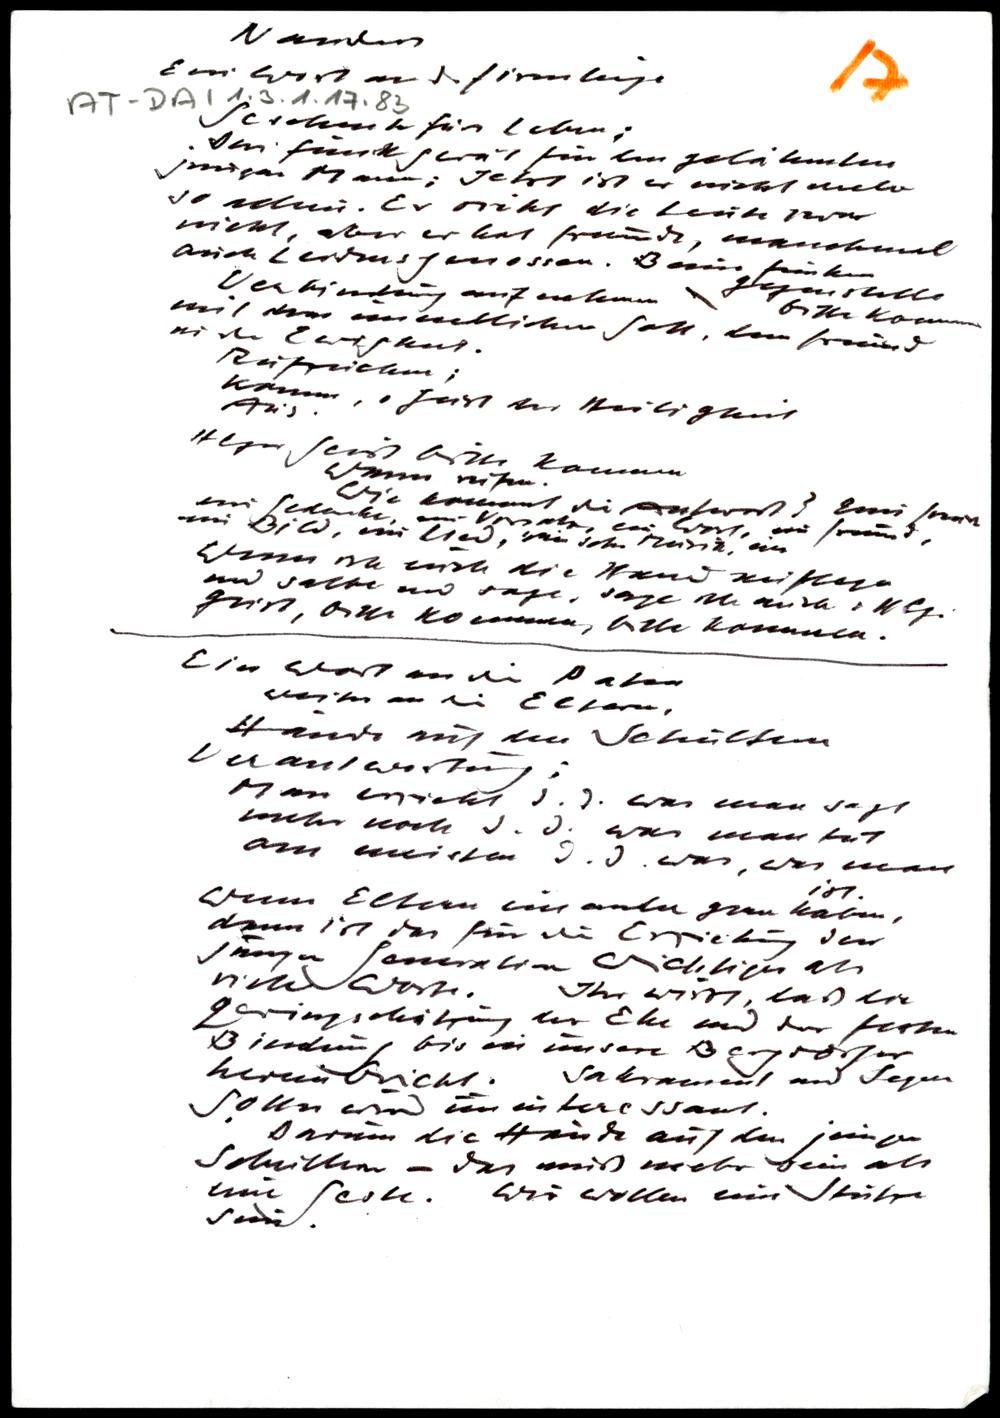 Nauders
Ein Wort an d. Firmlinge
17
AT-DAI 1.3.1.17.83
Geschenk fürs Leben;
Das Funkgerät für den gelähmten
jungen Mann; Jetzt ist er nicht mehr
so allein. Er sieht die Leute zwar
nicht, aber er hat Freunde, manchmal
auch Leidensgenossen. Beim Funken
Gegenstelle
bitte kommen
Verbindung aufnehmen
mit dem unendlichen Gott, dem Freund
in der Ewigkeit.
Rufzeichen;
Komm, o Geist der Heiligkeit
Aus.
Hlger Geist bitte kommen
Wann rufen.
Wie kommt die Antwort?
ein Gedanke, ein Vorsatz, ein Wort, ein Freund,
ein Bild, ein Lied, eine schöne Musik, ein
Wenn ich euch die Hand auflege
und salbe und sage, sage ich auch: Hlg.
Geist, bitte kommen, bitte kommen.
Ein Wort an die Paten
weiter an die Eltern,
Hände auf den Schultern
Verantwortung;
Man erzieht d. d. was man sagt
mehr noch d. d. was man tut
am meisten d. d. was, was man
ist.
Wenn Eltern einander gern haben,
dann ist das für die Erziehung der
jungen Generation wichtiger als
viele Worte. Ihr wißt, daß die
Geringschätzung der Ehe und der festen
Bindung bis in unsere Bergdörfer
hereinbricht. Sakrament und Segen
Gottes wird uninteressant.
Darum die Hände auf den jungen
Schultern – das muß mehr sein als
eine Geste. Wir wollen eine Stütze
sein.